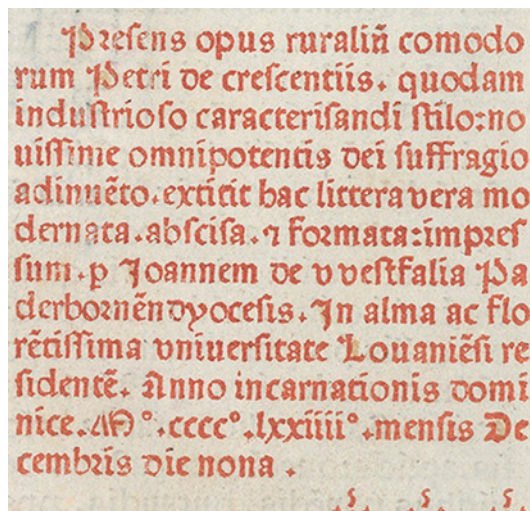 Preſens opus ruraliū comodo
rum Petri de creſcentiis. quodam
induſtrioſo caracteriſandi ſtilo:no
uiſſime omnipotentis dei ſuffragio
adinuēto.extitit hac littera vera mo
dernata.abſciſa.⁊ formata:impreſ
ſum.ꝑ Joannem de vveſtfalia Pa
derbornēn dyoceſis. In alma ac flo
rētiſſima vniuerſitate Louaniēſi re
ſidentē. Anno incarnationis domi
nice.M°.cccc°.lxxiiii°.menſis De
cembris die nona .